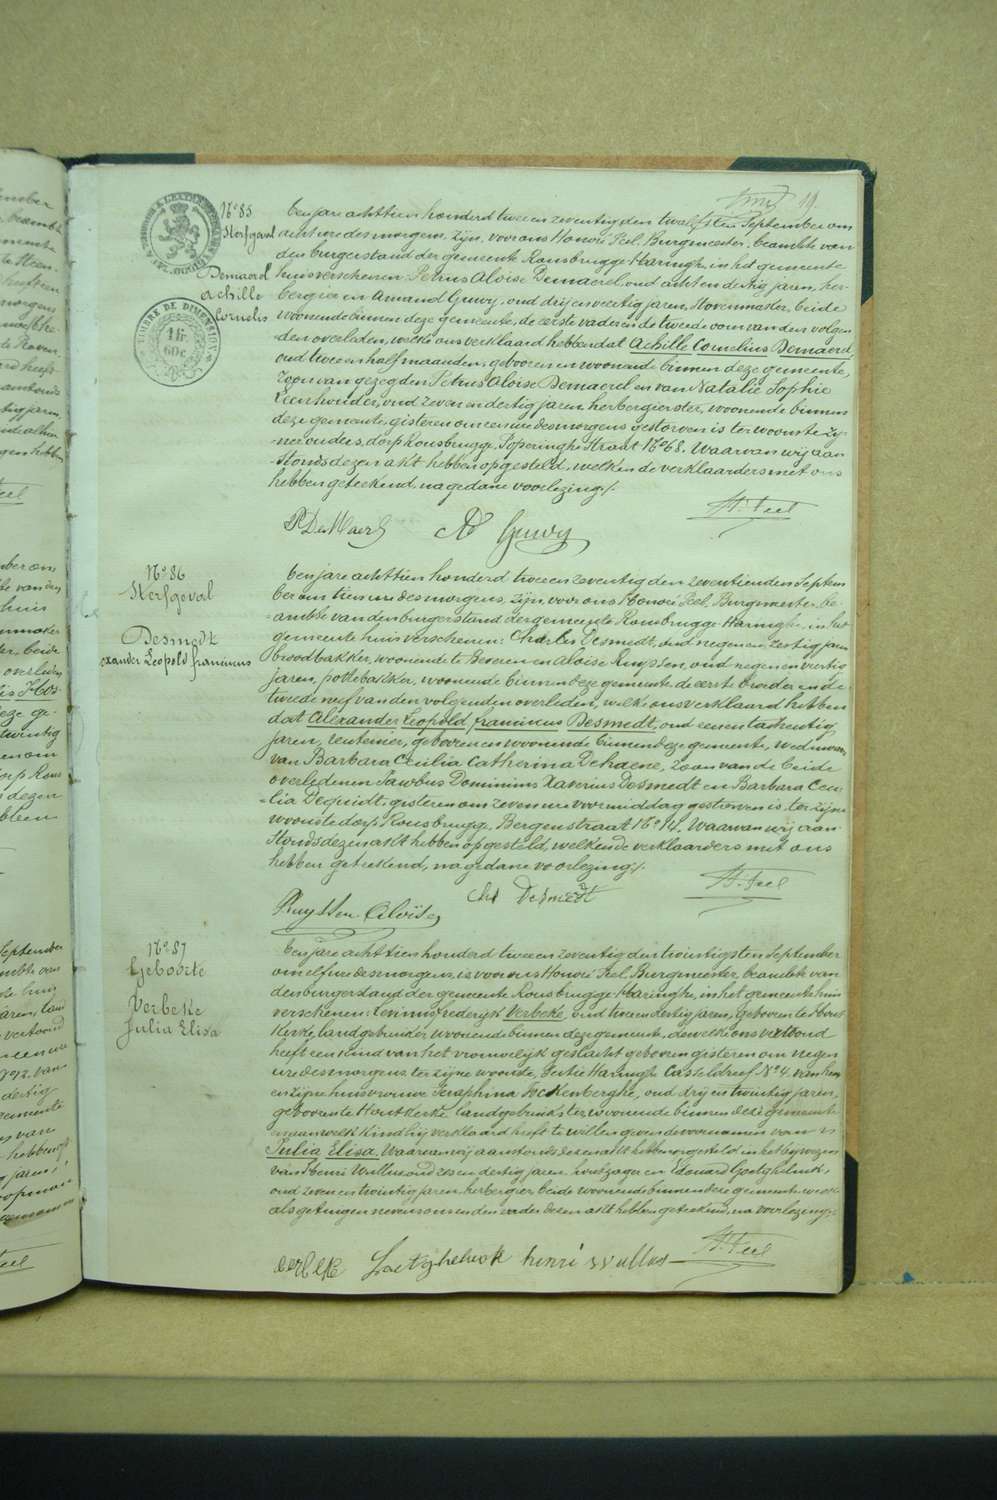 19
N° 85
Sterfgeval
Demaerel
Achille
Cornelis
TIMBRE DE DIMENSION
1 fr.
60c
Ten jare achttien honderd twee en zeventig den twalfsten September om
acht ure des morgens, zijn, voor ons Honoré Feel, Burgmeester, beambte van
den burgerstand der gemeente Rousbrugge-Haringhe, in het gemeente
huis verschenen Petrus Aloise Demaerel, oud acht en dertig jaren, her-
bergier en Amand Guwy, oud drij en veertig jaren, Hovenmaker, beide
woonende binnen deze gemeente, de eerste vader en de tweede oom van den volgen
den overleden, welke ons verklaard hebben dat Achille Cornelius Demaerel,
oud twee en half maanden, geboren en woonende binnen deze gemeente,
zoon van gezegden Petrus Aloise Demaerel en van Natalie Sophie
Leenhouder, oud zeven en dertig jaren herbergierster, woonende binnen
deze gemeente, gisteren om een ure des morgens gestorven is ter woonste zij-
ner ouders, dorp Rousbrugge, Poperinghe Straat N° 68. Waarvan wij aan
stonds dezen akt hebben opgesteld, welken de verklaarders met ons
hebben geteekend, na gedane voorlezing./.
H. Feel
P DeMaerel Ad Guwy
N° 86
Sterfgeval
Desmedt
exander Leopold franciscus
Ten jare achttien honderd twee en zeventig den zeventienden Septem
ber om tien ure des morgens, zijn, voor ons Honoré Feel, Burgmeester, be-
ambte van den burgerstand der gemeente Rousbrugge-Haringhe, in het
gemeente huis verschenen: Charles Desmedt, oud negen en zestig jaren
broodbakker, woonende te Beveren en Aloise Ruyssen, oud negen en veertig
jaren, pottebakker, woonende binnen deze gemeente de eerste broeder en de
tweede neef van den volgenden overleden, welke ons verklaard hebben
dat Alexander Leopold franciscus Desmedt, oud een en tachentig
jaren, rentenier, geboren en woonende binnen deze gemeente, weduwaar
van Barbara Cecilia Catherina Dehaene, zoon van de beide
overledenen Jacobus Dominicus Xaverius Desmedt en Barbara Ceci
lia Dequidt, gisteren om zeven ure voormiddag gestorven is, ter zijne
woonste dorp Rousbrugge, Bergenstraat N° 14. Waarvan wij aan
stonds dezen akt hebben opgesteld, welken de verklaarders met ons
hebben geteekend, na gedane voorlezing./.
H. Feel
Chs Desmedt
Ruyssen Aloïse
N° 87
Geboorte
Verbeke
Julia Elisa
Ten jare achttien honderd twee en zeventig den twintigsten September
om elf ure des morgens, is voor ons Honoré Feel, Burgmeester, beambte van
den burgerstand der gemeente Rousbrugge-Haringhe, in het gemeente huis
verschenen: Livinus frederyk Verbeke, oud twee en dertig jaren, geboren te Hout
kerke, landgebruiker, woonende binnen deze gemeente, dewelke ons vertoond
heeft een kind van het vrouwelijk geslacht geboren gisteren om negen
ure des morgens, ter zijne woonste, Sectie Haringhe Casseldreef N° 4, van hem
en zijne huisvrouwe Seraphina Fockenberghe, oud drij en twintig jaren,
geboren te Houtkerke, landgebruikster, woonende binnen deze gemeente
en aan welk kind hij verklaard heeft te willen geven de voornamen van
Julia Elisa. Waarvan wij aanstonds dezen akt hebben opgesteld in het bijwezen
van Henri Willems oud zes en dertig jaren, houtzager en Edouard Goetghebeur,
oud zeven en twintig jaren, herbergier, beide woonende binnen deze gemeente, welke
als getuigen nevens ons en den vader dezen akt hebben geteekend, na voorlezing./.
H. Feel